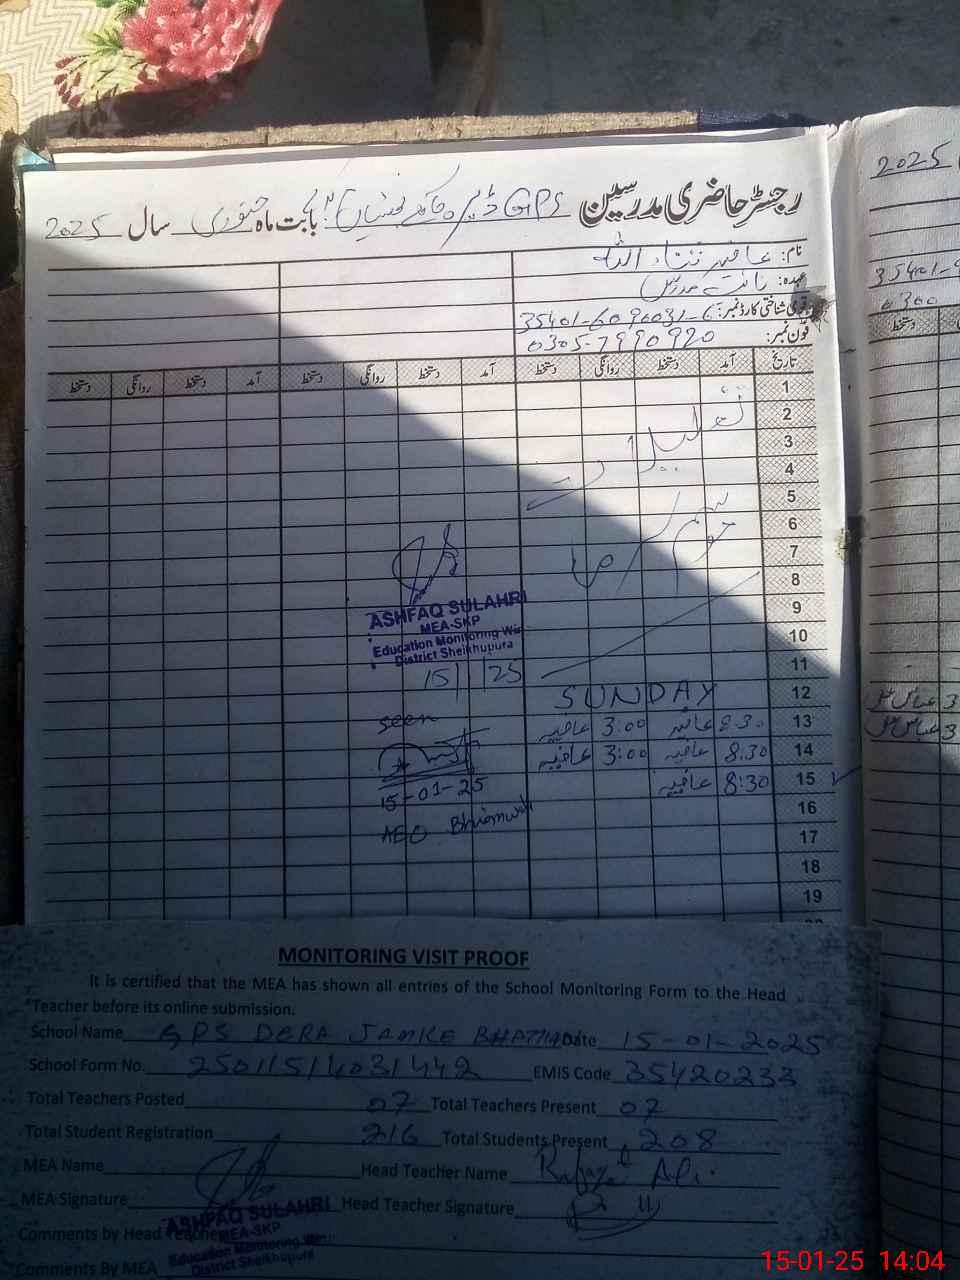 رجسٹر حاضری مدرسین GPS ڈیرہ جامکے بھٹیاں بابت ماہ جنوری سال 2025
2025
نام:
عہدہ:
قومی شناختی کارڈ نمبر: 35401-6090031-6
35401-
فون نمبر: 0305-7990920
0300
تاریخ آمد دستخط روانگی دستخط آمد دستخط روانگی دستخط آمد دستخط روانگی دستخط
دستخط
1
2
3
تعطیلات
4
5
موسم سرما
6
7
8
9
10
11
ASHFAQ SULAHRI
MEA-SKP
Education Monitoring Win
District Sheikhupura
15 1 25
12 SUNDAY
13 8.30 3:00
14 8.30 3:00
15 8:30
16
17
18
19
seen
15-01-25
AEO
MONITORING VISIT PROOF
It is certified that the MEA has shown all entries of the School Monitoring Form to the Head
Teacher before its online submission.
School Name GPS DERA JAMKE BHATTIAN Date 15-01-2025
School Form No. 25011514031442 EMIS Code 35420233
Total Teachers Posted 07 Total Teachers Present 07
Total Student Registration 216 Total Students Present 208
MEA Name Head Teacher Name Ali
MEA Signature Head Teacher Signature
Comments by Head Teacher
Comments By MEA
ASHFAQ SULAHRI
MEA-SKP
Education Monitoring Win
District Sheikhupura
15-01-25 14:04